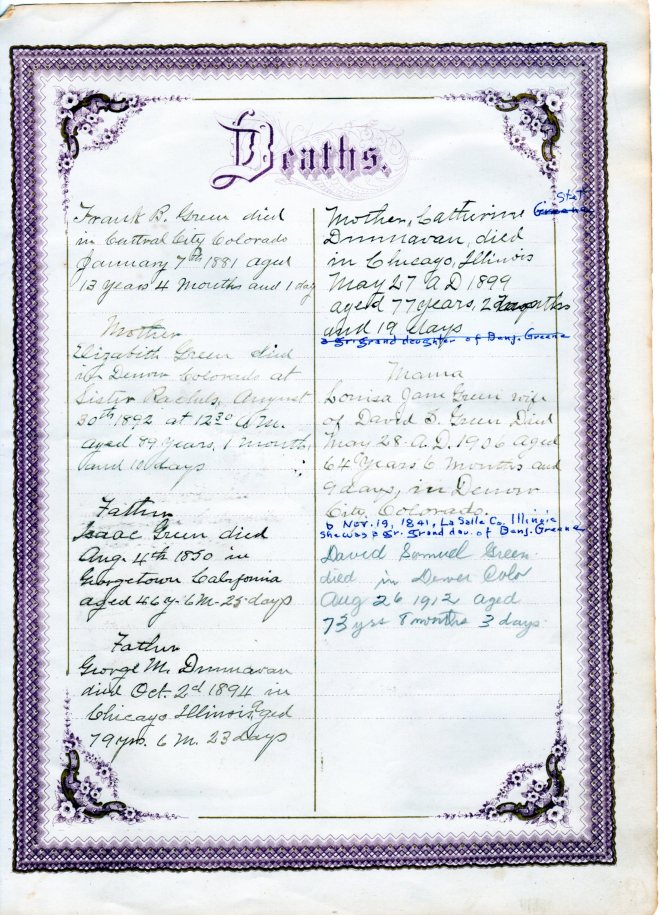 Deaths.
Frank B. Green died
in Central City Colorado
January 7th 1881 aged
13 years 4 Months and 1 day
Mother
Elizabeth Green died
in Denver Colorado at
Sister Rachels, August
30th 1892 at 12 30 A.M.
aged 89 years, 1 month,
and 10 days
Father
Isaac Green died
Aug. 4th 1850 in
Georgetown California
aged 46 y. 6 M. 25 days
Father
George M. Dunnavan
died Oct. 2d 1894 in
Chicago Illinois, aged
79 yrs. 6 M. 23 days
Stet
Mother, Catherine Greene
Dunnavan, died
in Chicago, Illinois
May 27 A D 1899
aged 77 years, 2 months
and 19 days
a gr. grand daughter of Benj. Greene
Mama
Louisa Jane Green wife
of David S. Green Died
May 28 A.D. 1906 aged
64 Years 6 Months and
9 days, in Denver
City, Colorado.
b Nov. 19, 1841, La Salle Co. Illinois
She was a gr. grand dau. of Benj. Greene
David Samuel Green
died in Denver Colo
Aug 26 1912 aged
73 yrs 8 months 3 days